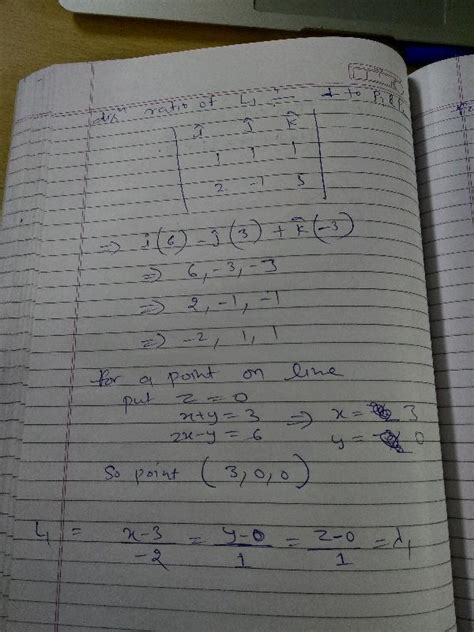 dirⁿ ratio of L₁ ⊥ to P₁ & P₂
| î ĵ k̂ |
| 1 1 1 |
| 2 -1 5 |
⇒ î(6) - ĵ(3) + k̂(-3)
⇒ 6, -3, -3
⇒ 2, -1, -1
⇒ -2, 1, 1
for a point on line
put z = 0
x+y = 3 ⇒ x = 3
2x-y = 6 y = 0
So point (3, 0, 0)
L₁ = x-3/-2 = y-0/1 = z-0/1 = λ₁